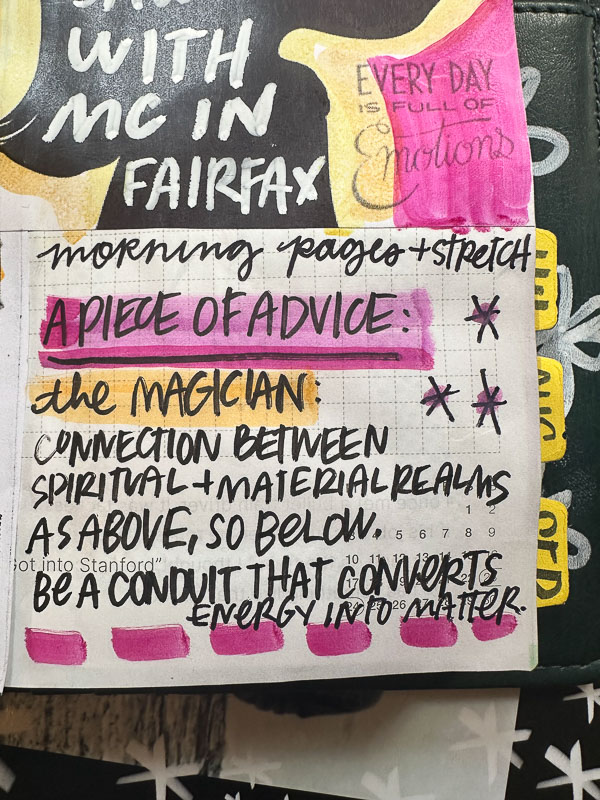 WITH
MC IN
FAIRFAX
EVERY DAY
IS FULL OF
Emotions
morning pages + STRETCH
A PIECE OF ADVICE:
the MAGICIAN:
CONNECTION BETWEEN
SPIRITUAL + MATERIAL REALMS
1 2
AS ABOVE, SO BELOW.
4 5 6 7 8 9
got into Stanford”
10 11 12 13 14 15 16
BE A CONDUIT THAT CONVERTS
17
ENERGY INTO MATTER.
24 25 26